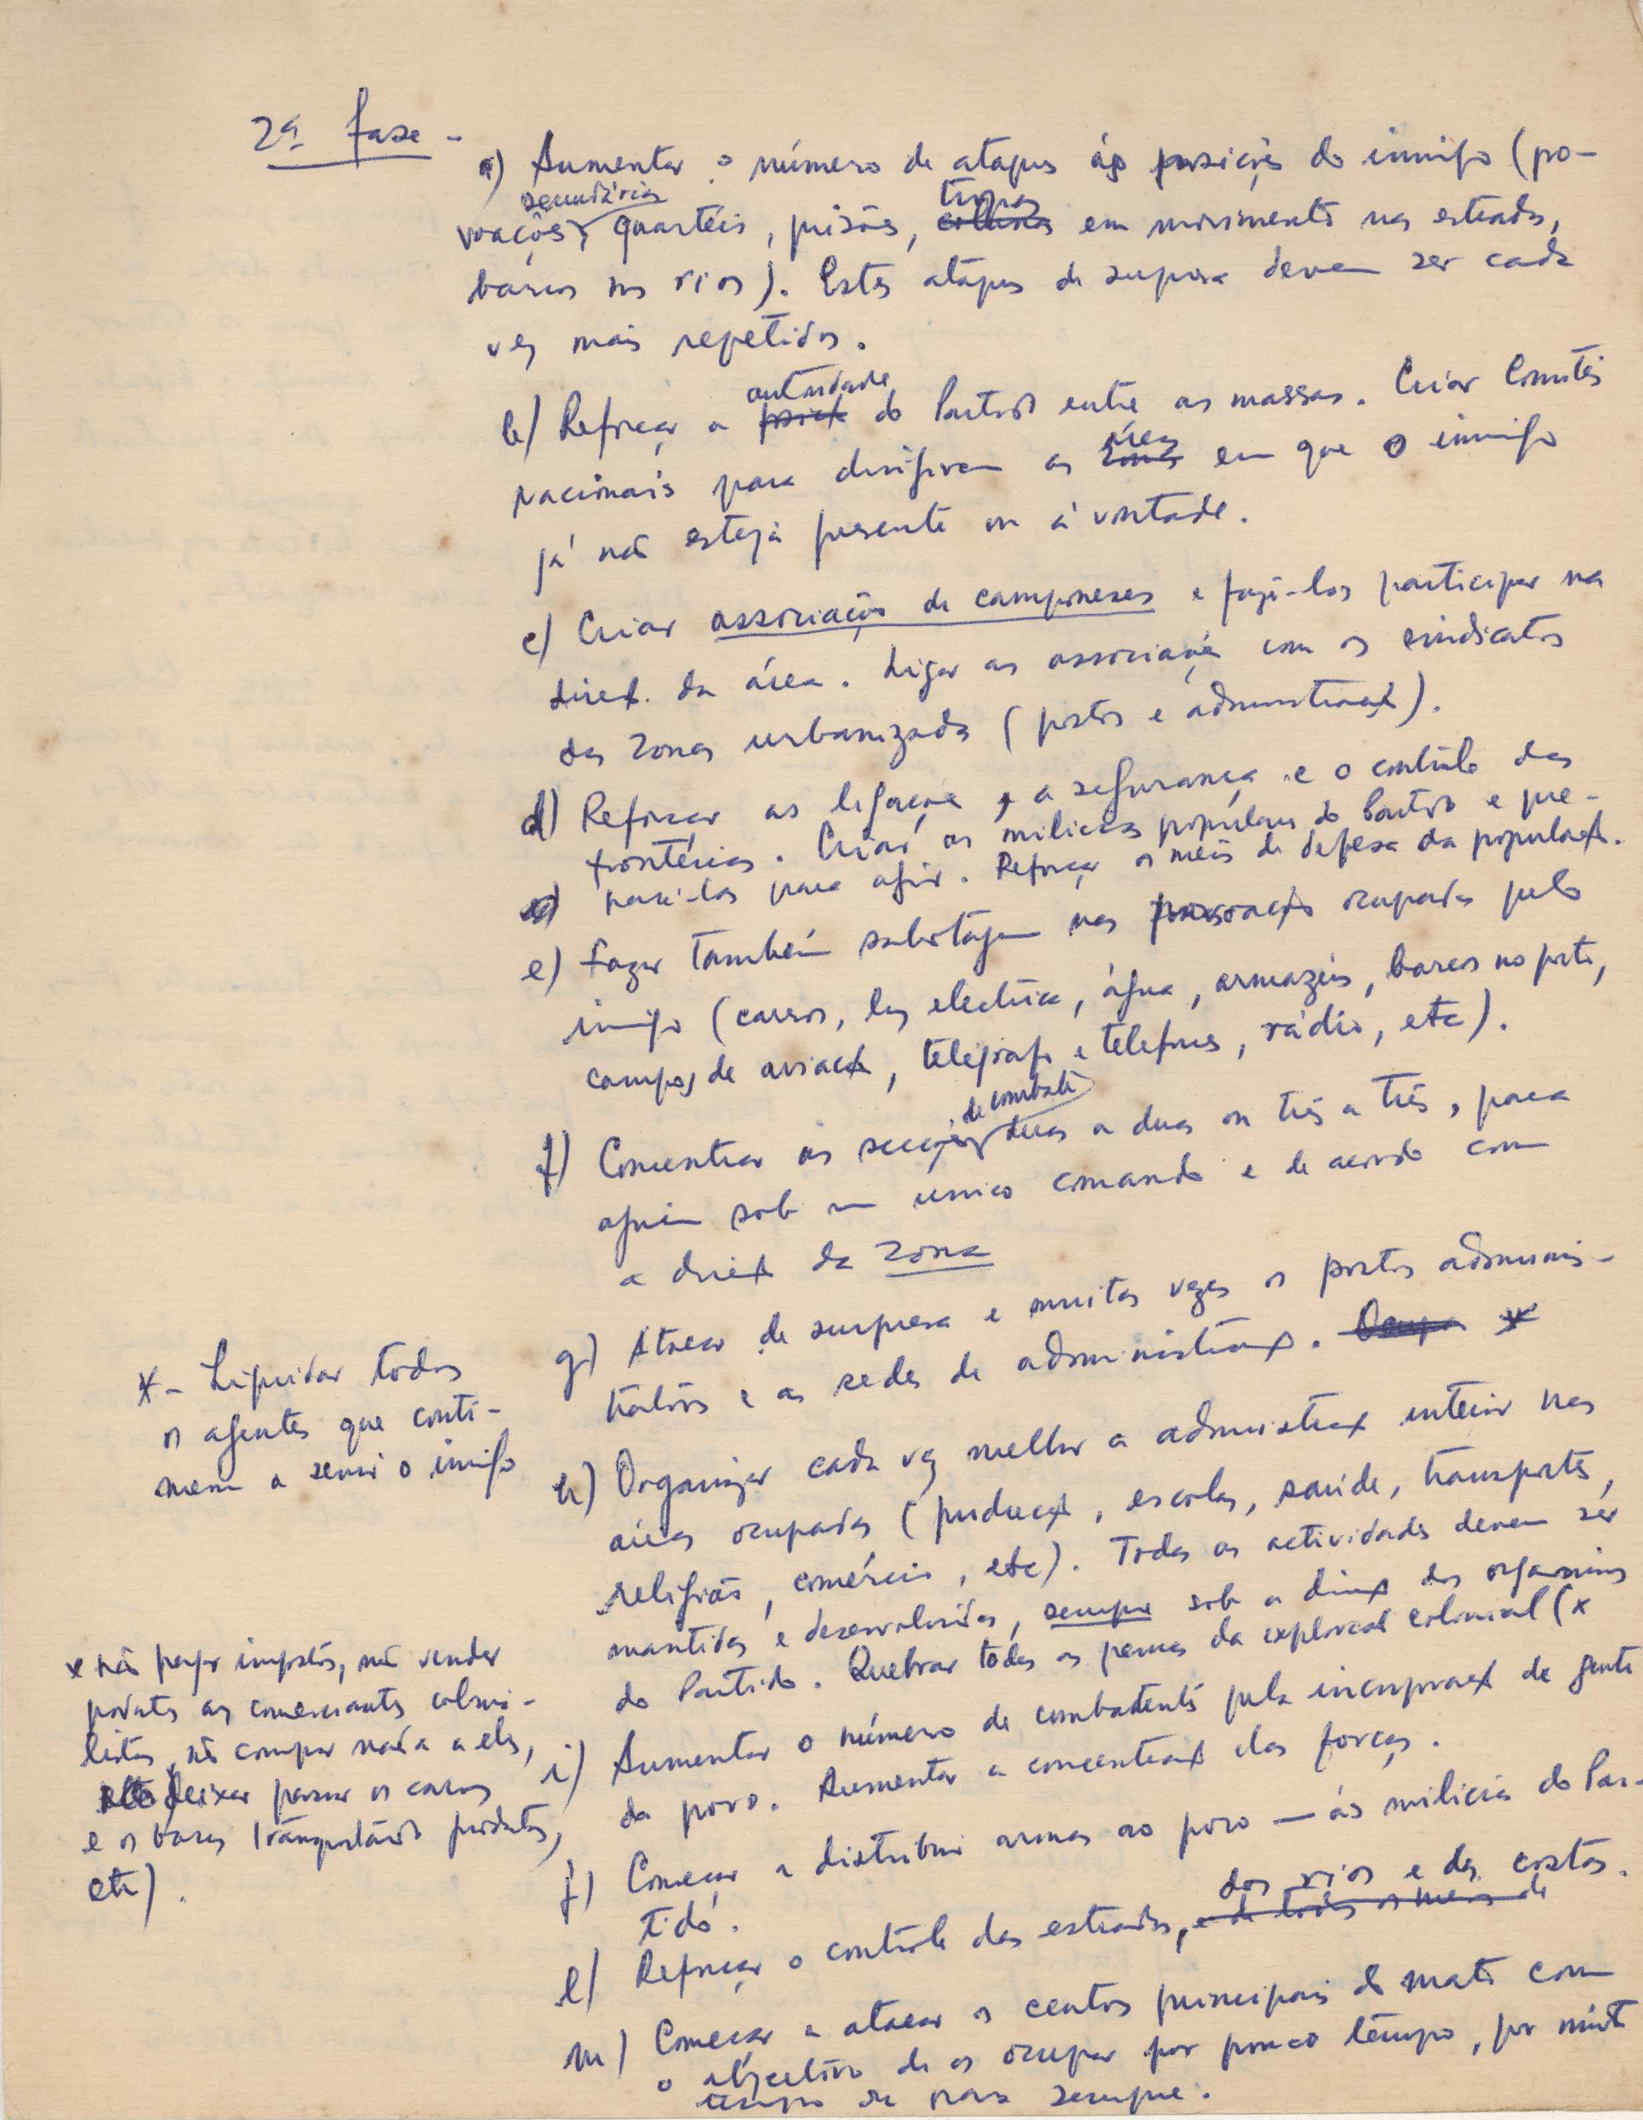 2ª fase -
a) Aumentar o número de ataques às posições do inimigo (po-
secundárias tropas
voações, quartéis, prisões, colunas em movimento nas estradas,
barcos nos rios). Estes ataques de surpresa devem ser cada
vez mais repetidos.
autoridade
b) Reforçar a do Partido entre as massas. Criar Comités
áreas
nacionais para dirigirem as zonas em que o inimigo
já não esteja presente ou à vontade.
c) Criar associações de camponeses e fazê-los participar na
direcç. da área. Ligar as associações com os sindicatos
das zonas urbanizadas (postos e administraçõ).
d) Reforçar as ligações, a segurança e o contrôle das
fronteiras. Criar as milicias populares do Partido e pre-
pará-las para agir. Reforçar os meios de defesa da populaçõ.
e) Fazer também sabotagem nas povoações ocupadas pelo
inimigo (carros, luz electrica, água, armazéns, barcos no porto,
campos de aviaçõ, telégrafo e telefones, rádio, etc).
de combate
f) Concentrar as secções duas a duas ou três a três, para
agirem sob um unico comando e de acordo com
a direcçõ da zona
g) Atacar de surpresa e muitas vezes os postos adminis-
trativos e as sedes de administraçõ. Ocupar *
* - Liquidar todos
os agentes que conti-
nuem a servir o inimigo
h) Organizar cada vez melhor a administraçõ interior nas
áreas ocupadas (produçõ, escolas, saúde, transportes,
religião, comércio, etc). Todas as actividades devem ser
mantidas e desenvolvidas, sempre sob a direcçõ dos organismos
do Partido. Quebrar todas as pernas da exploraçõ colonial (x
x não pagar impostos, não vender
produtos aos comerciantes colonia-
listas, não comprar nada a eles,
não deixar passar os carros
e os barcos transportando produtos,
etc).
i) Aumentar o número de combatentes pela incorporaçõ de gente
do povo. Aumentar a concentraçõ das forças.
j) Começar a distribuir armas ao povo — às milicias do Par-
tido.
dos rios e das costas.
l) Reforçar o contrôle das estradas, e de todos os meios de
m) Começar a atacar os centros principais do mato com
o objectivo de os ocupar por pouco tempo, por muito
tempo ou para sempre.